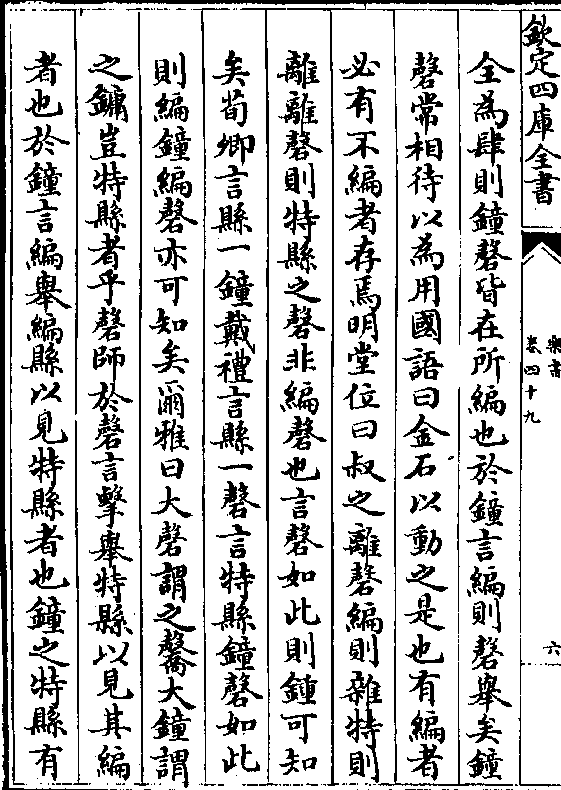 欽定四庫全書
樂書
卷四十九
六
全為肆則鐘磬皆在所編也於鐘言編則磬舉矣鐘
磬常相待以為用國語曰金石以動之是也有編者
必有不編者存焉明堂位曰叔之離磬編則雜特則
離離磬則特縣之磬非編磬也言磬如此則鍾可知
矣荀卿言縣一鐘戴禮言縣一磬言特縣鐘磬如此
則編鐘編磬亦可知矣爾雅曰大磬謂之毊大鐘謂
之鏞豈特縣者乎磬師於磬言擊舉特縣以見其編
者也於鐘言編舉編縣以見特縣者也鐘之特縣有